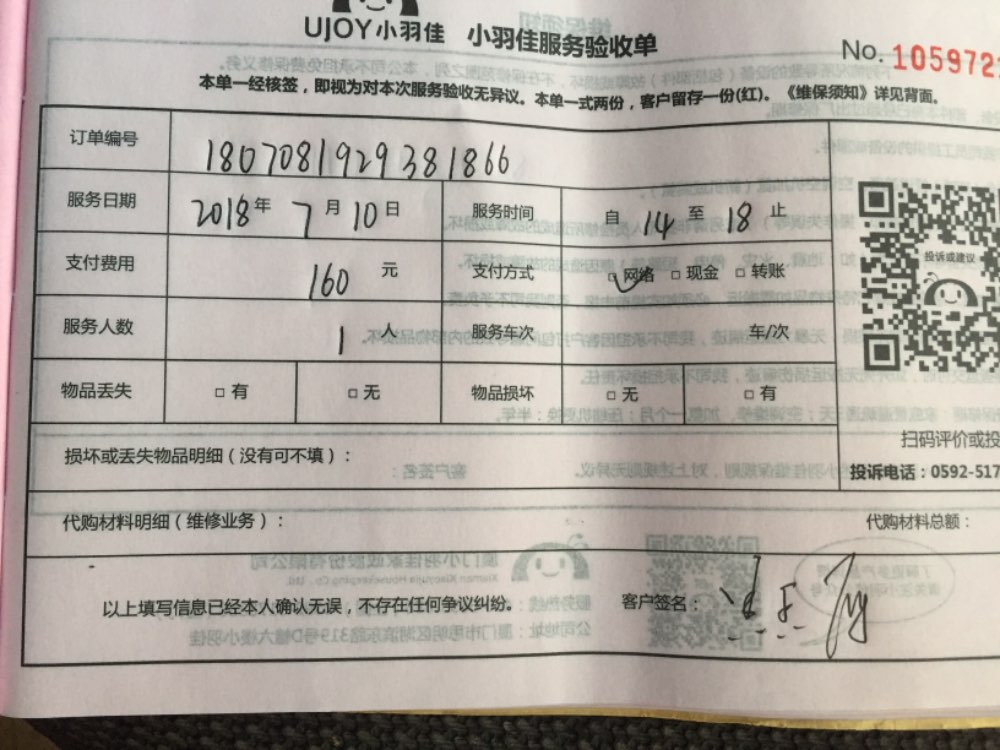 UJOY小羽佳 小羽佳服务验收单
No. 105972
本单一经核签，即视为对本次服务验收无异议。本单一式两份，客户留存一份(红)。《维保须知》详见背面。
订单编号 1807081929381866
服务日期 2018年 7月10日 服务时间 自 14 至 18 止
支付费用 160 元 支付方式 □网络 □现金 □转账
服务人数 1 人 服务车次 车/次
物品丢失 □有 □无 物品损坏 □无 □有
投诉或建议
扫码评价或投
损坏或丢失物品明细（没有可不填）：
投诉电话：0592-517
代购材料明细（维修业务）： 代购材料总额：
以上填写信息已经本人确认无误，不存在任何争议纠纷。 客户签名：